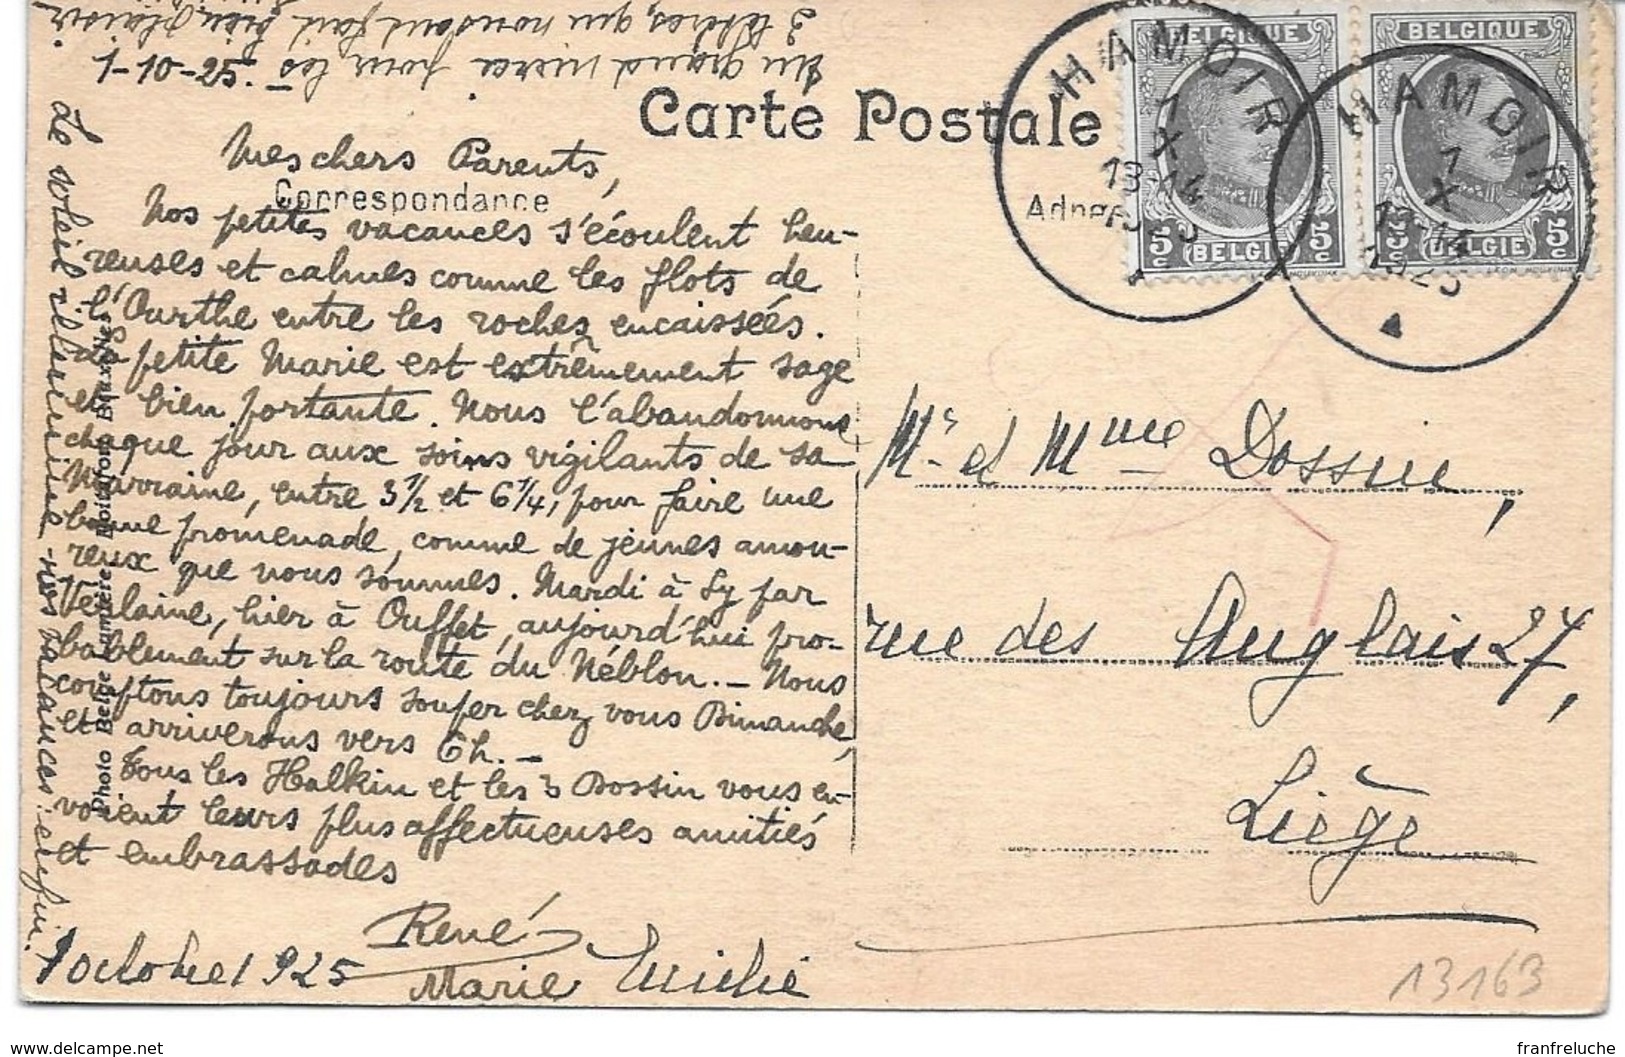 Un grand merci pour les
2 lettres qui nous ont fait bien plaisir.
1-10-25.
Carte Postale
Correspondance
Mes chers Parents,
Nos petites vacances s'écoulent heu-
reuses et calmes comme les flots de
l'Ourthe entre les roches encaissées.
La petite Marie est extrêmement sage
et bien portante. Nous l'abandonnons
chaque jour aux soins vigilants de sa
Marraine, entre 3 1/2 et 6 1/4, pour faire une
bonne promenade, comme de jeunes amou-
reux que nous sommes. Mardi à Sy par
Verlaine, hier à Ouffet, aujourd'hui pro-
bablement sur la route du Néblon. _ Nous
comptons toujours souper chez vous Dimanche,
et arriverons vers 6h. _
Tous les Halkin et les 3 Dossin vous en-
voient leurs plus affectueuses amitiés
et embrassades
René
Marie Emilie
1 octobre 1925
Le soleil illumine nos vacances enfin.
Photo Belge Lumière
HAMOIR
1
X
13-14
1925
HAMOIR
1
X
13-14
1925
BELGIQUE
5c BELGIE 5c
BELGIQUE
5c BELGIE 5c
Mr et Mme Dossin,
rue des Anglais 27,
Liège
13163
www.delcampe.net
franfreluche